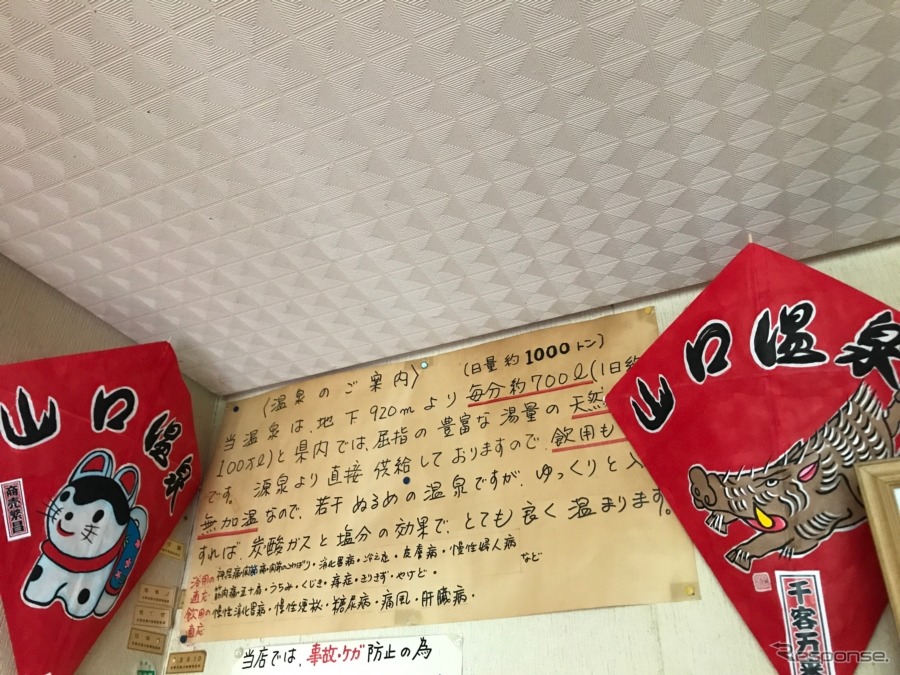 〈温泉のご案内〉
(日量約1000トン)
当温泉は、地下920mより毎分約700ℓ(1日約
100万ℓ)と県内では、屈指の豊富な湯量の天然
です。源泉より直接供給しておりますので、飲用も
無加温なので、若干ぬるめの温泉ですが、ゆっくりと入
すれば、炭酸ガスと塩分の効果で、とても良く温まります。
浴用の適応
消化器病・冷え症・皮膚病・慢性婦人病 など
うちみ・くじき・痔症・きりきず・やけど・
飲用の適応
慢性消化器病・慢性便秘・糖尿病・痛風・肝臓病・
当店では、事故・ケガ防止の為
山口温泉
商売繁昌
山口温泉
千客万来
Response.